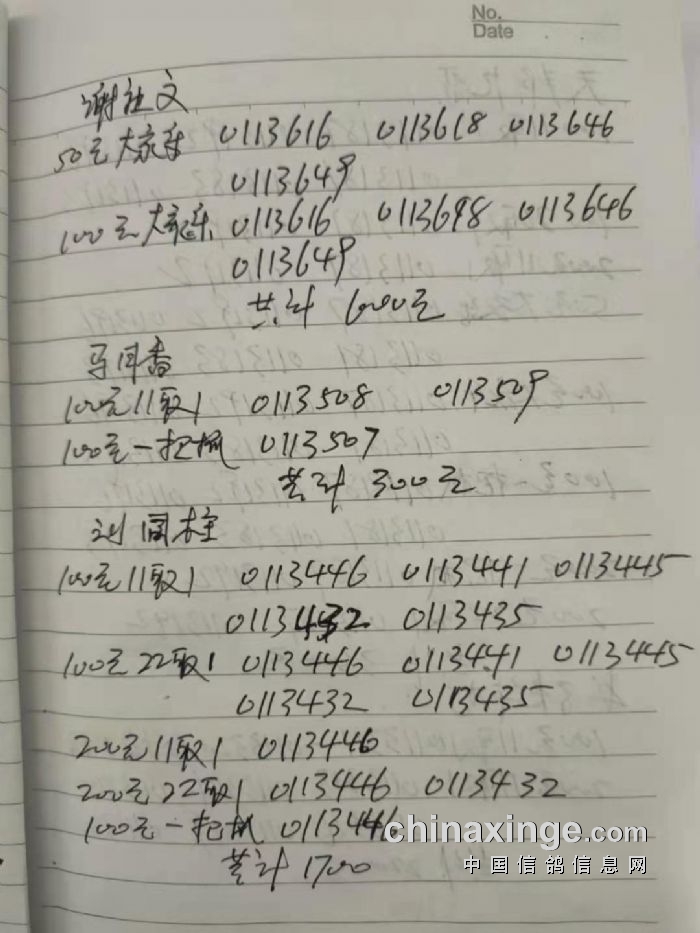 No.
Date
谢社文
50元大家乐 0113616 0113618 0113646
0113649
100元大家乐 0113616 0113698 0113646
0113649
共计 600元
马回香
100元11取1 0113508 0113509
100元一把抓 0113507
共计 300元
刘国柱
100元11取1 0113446 0113441 0113445
0113432 0113435
100元22取1 0113446 0113441 0113445
0113432 0113435
200元11取1 0113446
200元22取1 0113446 0113432
100元一把抓 0113446
共计 1700
chinaxinge.com
中国信鸽信息网